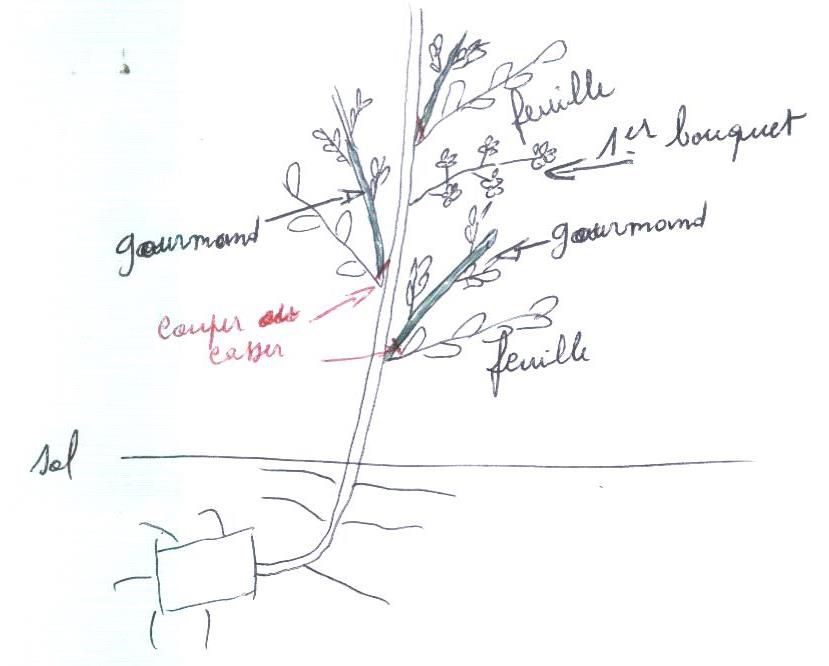 feuille
1er bouquet
gourmand
gourmand
couper ou
casser
feuille
sol